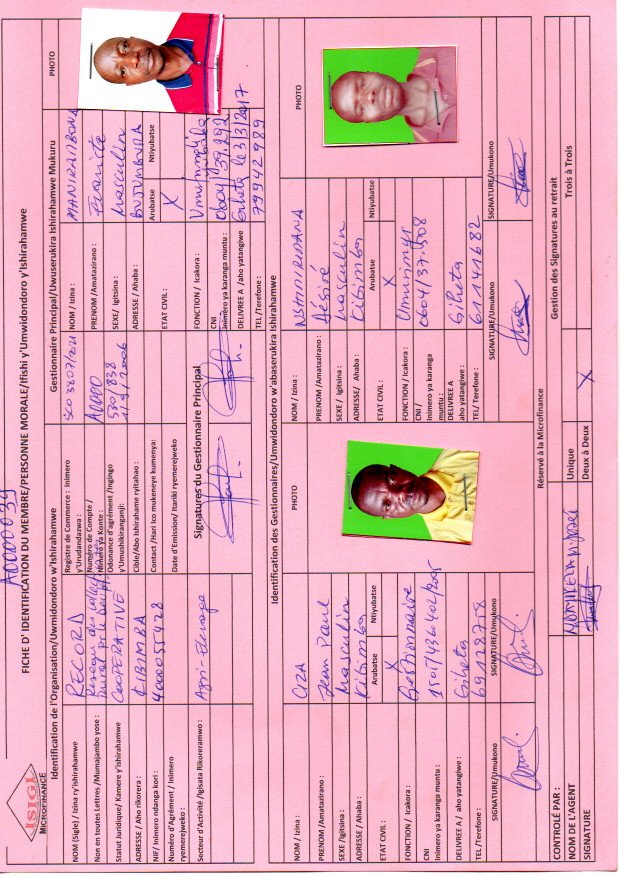 ISIGI
MICROFINANCE
FICHE D' IDENTIFICATION DU MEMBRE/PERSONNE MORALE/Ifishi y'Umwidondoro y'Ishirahamwe
Identification de l'Organisation/Uwmidondoro w'Ishirahamwe
NOM (Sigle) / Izina ry'ishirahamwe
RECORD
Non en toutes Lettres /Mumajambo yose :
Statut Juridique/ Kamere y'ishirahamwe
COOPERATIVE
ADRESSE / Aho rikorera :
KIBIMBA
NIF/ Inimero ndanga kori :
4000055428
Numéro d'Agrément / Inimero ryemerejweko :
Secteur d'Activité /Igisata Rikoreramwo :
Agri-Elevage
Registre de Commerce : Inimero y'Urudandazwa :
Numéro de Compte / Nimero ya Konte :
Odonance d'agrément /Ingingo y'Umushikiranganji:
Cible/Abo ishirahame ryitahao :
Contact /Nari ico mukeneye kumenya:
Date d'Emission/ Itariki ryemerejweko
Signatures du Gestionnaire Principal
Gestionnaire Principal/Uwuserukira Ishirahamwe Mukuru
PHOTO
NOM / Izina :
MANIRAMBONA
PRENOM /Amatazirano :
SEXE/ Igitsina :
Masculin
ADRESSE / Ahaba :
BUJUMBURA
ETAT CIVIL :
Arubatse
Ntiyubatse
X
FONCTION / Icakora :
CNI
Inimero ya karanga muntu :
DELIVREE A /aho yatangiwe
Giheta le 3/3/2017
TEL /Terefone :
79942989
Identification des Gestionnaires/Umwidondoro w'abaserukira Ishirahamwe
NOM / Izina :
CIZA
PHOTO
PRENOM /Amatazirano :
Jean Paul
SEXE /Igitsina :
Masculin
ADRESSE / Ahaba :
Kibimba
ETAT CIVIL :
Arubatse
Ntiyubatse
X
FONCTION / Icakora :
Gestionnaire
CNI
Inimero ya karanga muntu :
DELIVREE A / aho yatangiwe :
Giheta
TEL /Terefone :
69128778
SIGNATURE/Umukono
SIGNATURE/Umukono
NOM / Izina :
NSHIMIRIMANA
PHOTO
PRENOM /Amatazirano :
Désiré
SEXE / Igitsina :
Masculin
ADRESSE/ Ahaba :
Kibimba
ETAT CIVIL :
Arubatse
Ntiyubatse
X
FONCTION / Icakora :
Umurimyi
CNI /
Inimero ya karanga muntu :
DELIVREE A
aho yatangiye :
Giheta
TEL/ Terefone :
61141682
SIGNATURE/Umukono
SIGNATURE/Umukono
Réservé à la Microfinance
CONTROLÉ PAR :
NOM DE L'AGENT
SIGNATURE
Gestion des Signatures au retrait
Unique
Deux à Deux
X
Trois à Trois